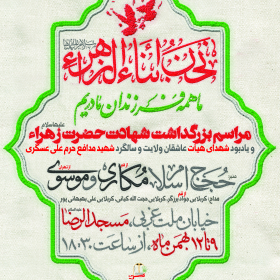 نحن أبناء الزهراء
ما همه فرزندان مادریم
مراسم بزرگداشت شهادت حضرت زهراء علیهاسلام
و یادبود شهدای هیأت عاشقان ولایت و سالگرد شهید مدافع حرم علی عسگری
حجج اسلام مکاری و موسوی
مداح: کربلایی جواد برزگر، کربلایی حجت الله کیانی، کربلایی علی بعیهانی پور
خیابان ملت غربی، مسجد الرضا
۹ تا ۱۲ بهمن ماه، از ساعت ۱۸:۰۳